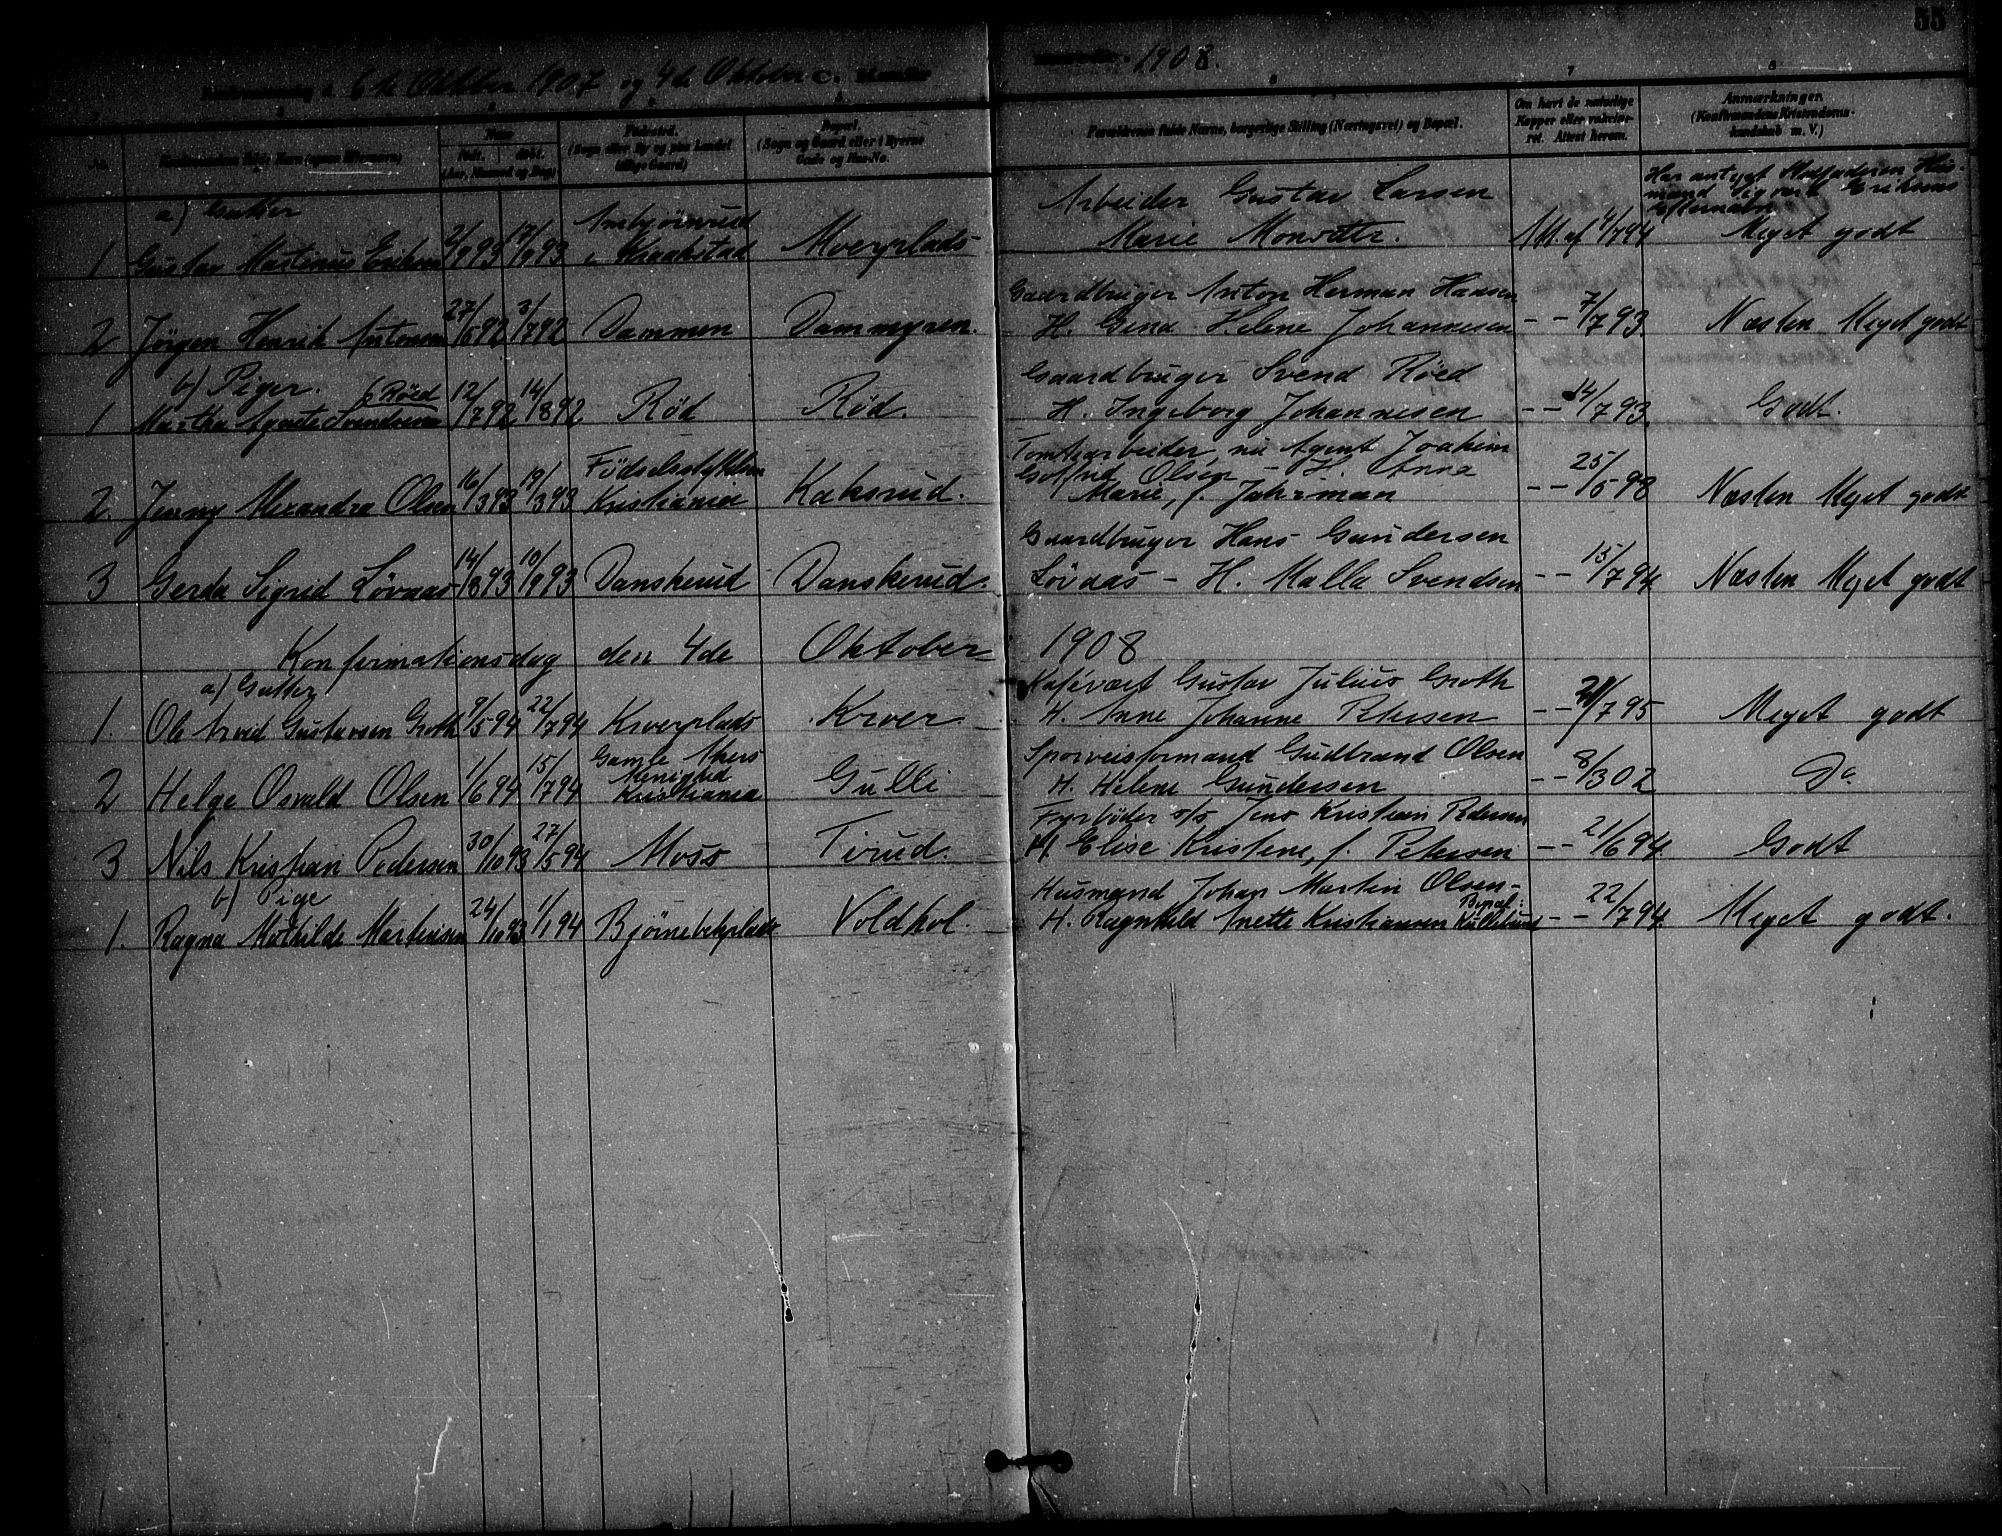 55
6te Oktober 1907 og 4de Oktober 1908.
No.
Födt.
döbt.
(Aar, Maaned og Dag)
Födested.
(Sogn eller By og paa Landet tillige Gaard)
Bopæl.
(Sogn og Gaard eller i Byerne Gade og Hus-No.
Forældrenes fulde Navn, borgerlige Stilling (Næringsvei) og Bopæl.
Om havt de naturlige Kopper eller vakcineret. Attest herom.
Anmærkninger.
(Konfirmandens Kristendomskundskab m. V.)
a) Gutter
Arbeider Gustav Larsen
Har antaget Stedfaderen Husmand Sigvart Eriksens Efternavn
1 Gustav Martinus Eriksen 2/9 93 17/9 93 i Kraakstad Kverplads Marie Att. af 4/7 94 Meget godt
Gaardbruger Anton Herman Hansen
2 Jørgen Henrik Antonsen 27/6 92 3/7 92 Dammen Dammyren. H. Gina Helene Johannesen - - 7/7 93. Næsten Meget godt
b) Piger.
Røed
Gaardbruger Svend Røed
1 Martha Agnete Svendsen 12/7 92 14/8 92 Röd Röd H. Ingeborg Johannesen - - 14/7 93 Godt.
Födselsattest Tomtearbeider, nu Agent Joakim
Gotfrid Olsen - H. Anna
2. Jenny Alexandra Olsen 16/3 93 19/3 93 Kristiania Kaksrud. Marie, f. Jahrman - - 25/5 98 Næsten Meget godt
Gaardbruger Hans Gundersen
3 Gerda Sigrid Løvaas 14/8 93 10/9 93 Danskerud Danskerud. Lövaas - H. Malla Svendsen - - 15/7 94 Næsten Meget godt
Konfirmationsdag den 4de Oktober 1908
a) Gutter
Kafévært Gustav Julius Groth
1. Ole Arvid Gustavsen Groth 9/5 94 22/7 94 Krverplads Krver H. Anne Johanne Petersen - - /7 95 Meget godt
Gamle Akers Menighed Sporveisformand Gudbrand Olsen
2 Helge Osvald Olsen 1/6 94 15/7 94 Kristiania Gulli H. Helene Gundersen - - 8/3 02 Do
Fyrbøder s/s Jens Kristian Pedersen
3 Nils Kristian Pedersen 30/10 93 27/5 94 Moss Tirud. H. Elise Kristine, f. Petersen - - 21/6 94 Godt
b) Pige
Husmand Johan Martin Olsen -
Bopæl:
1. Ragna Mathilde Martinsen 24/10 93 1/1 94 Bjørnebekplads Voldhol. H. Ragnhild Anette Kristiansen Kullebund - - 22/7 94 Meget godt.